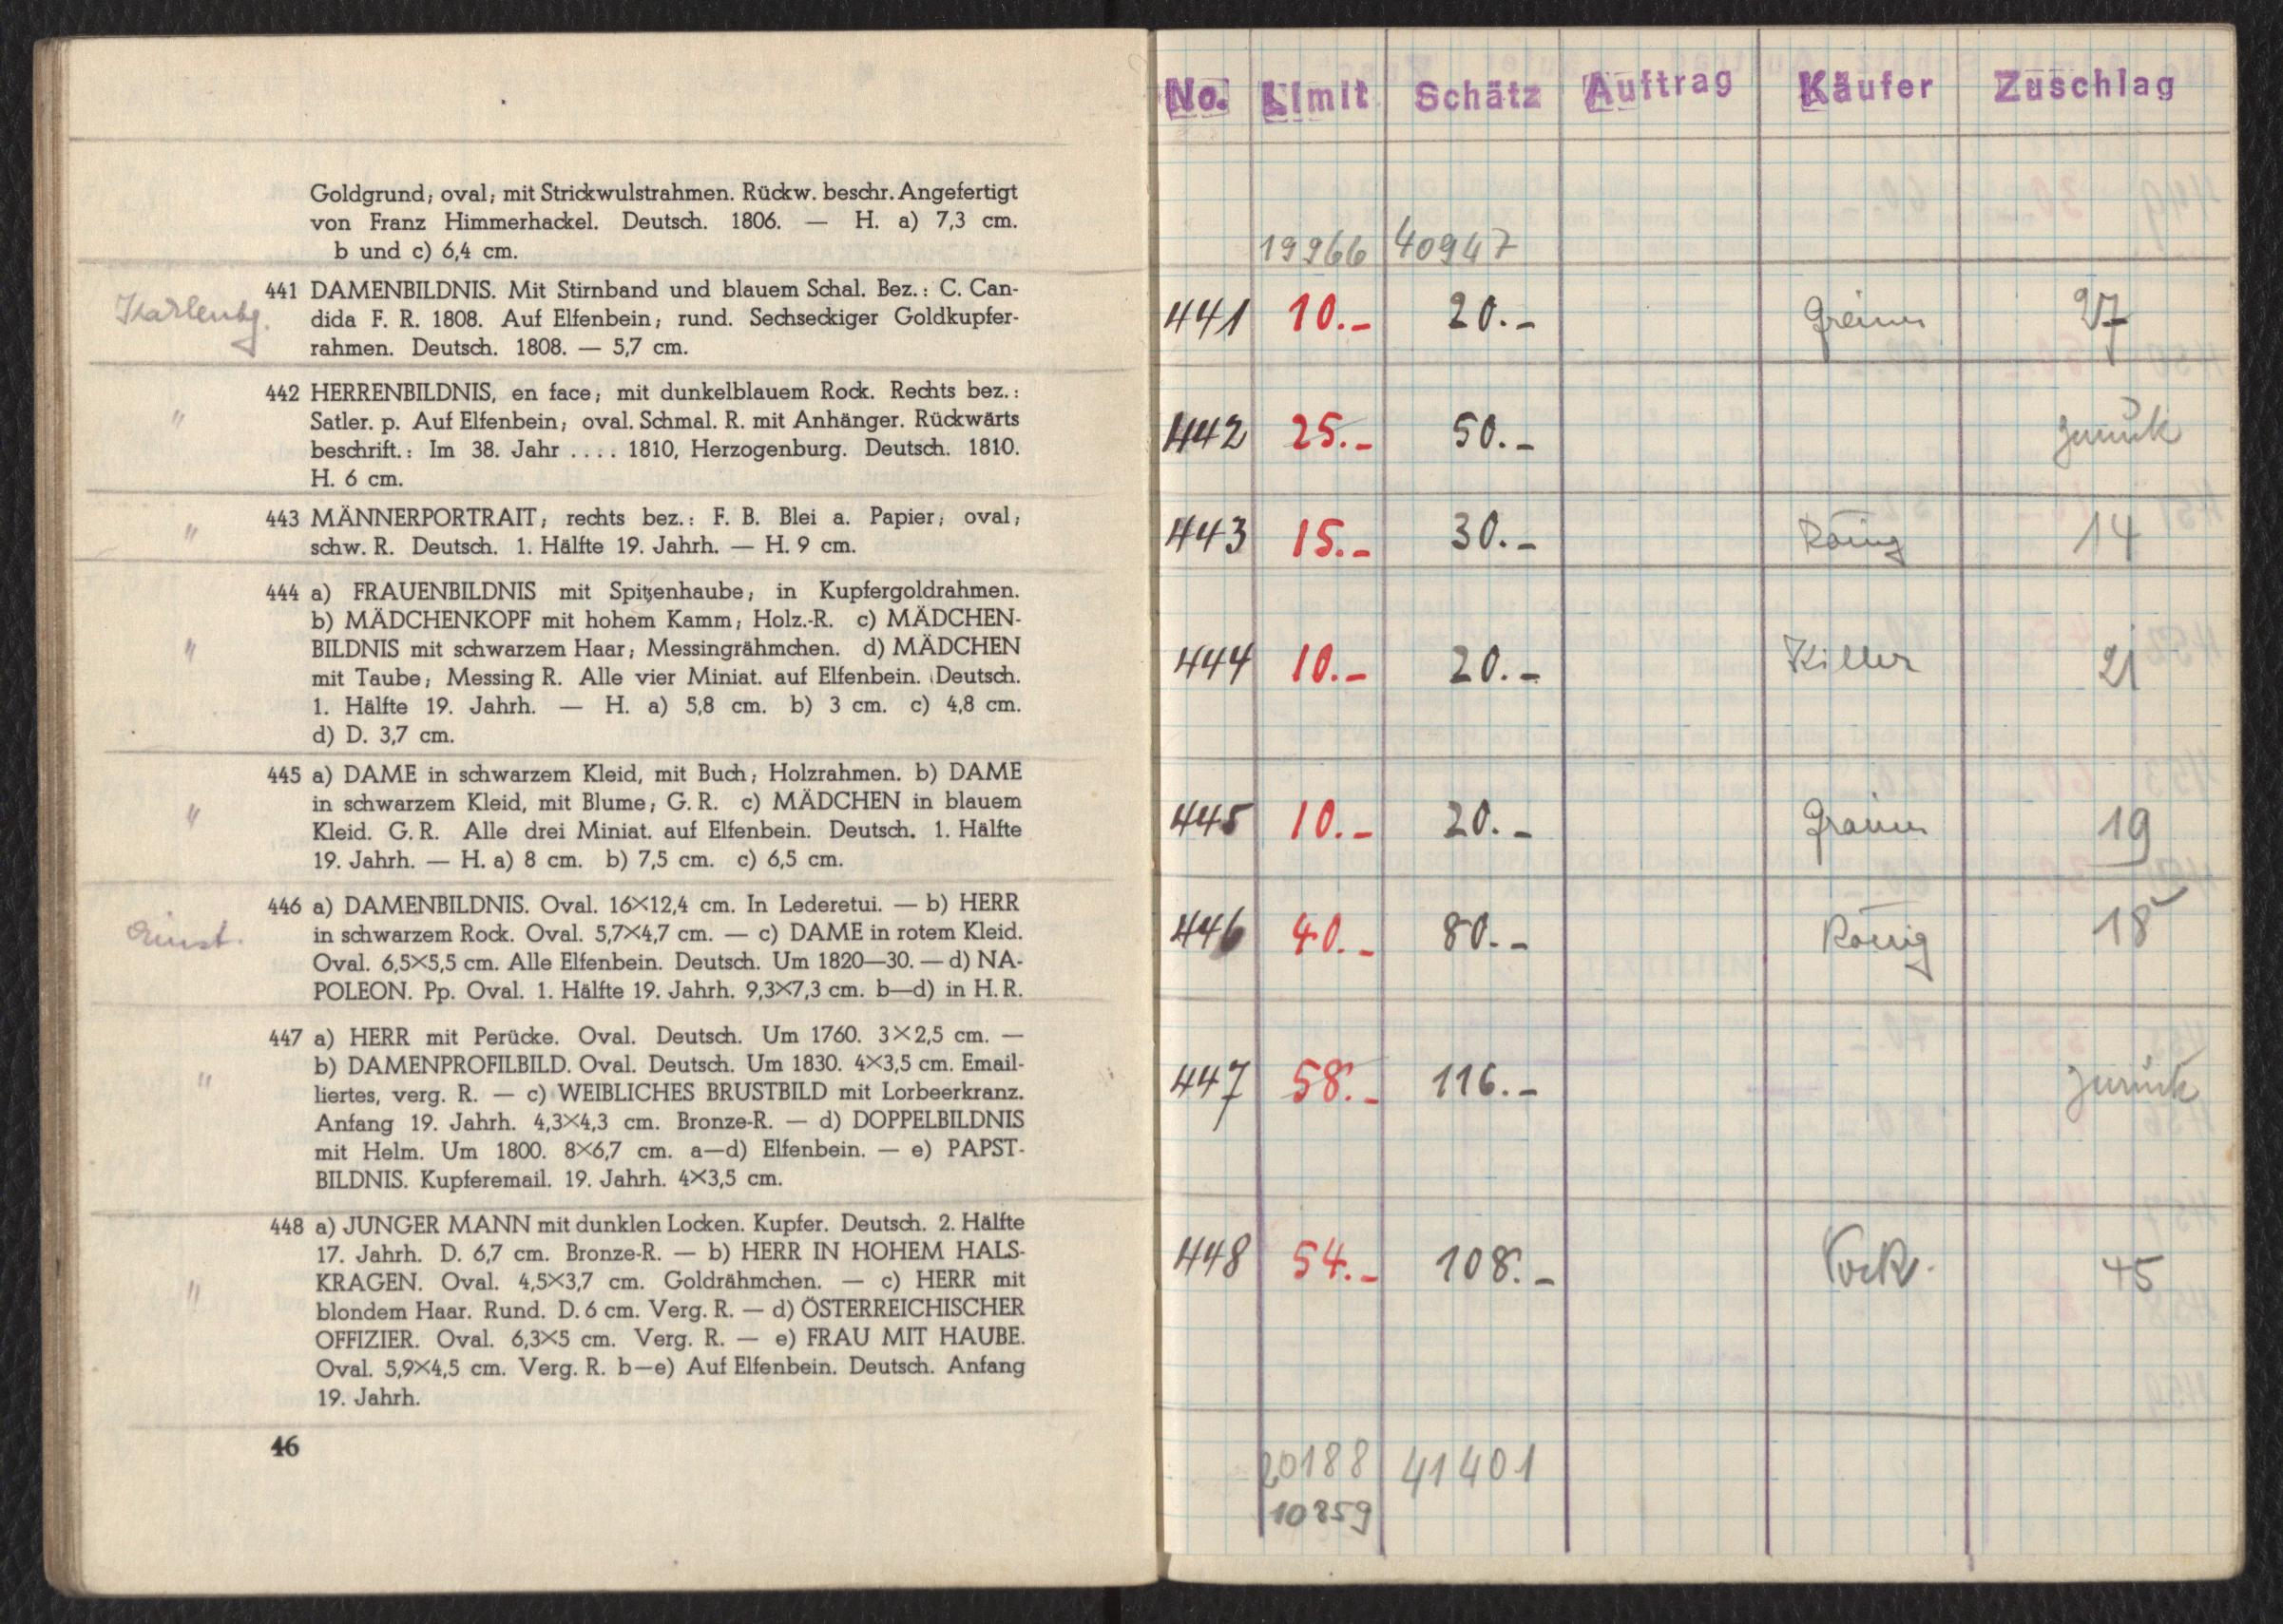 Goldgrund; oval; mit Strickwulstrahmen. Rückw. beschr. Angefertigt
von Franz Himmerhackel. Deutsch. 1806. — H. a) 7,3 cm.
b und c) 6,4 cm.
441 DAMENBILDNIS. Mit Stirnband und blauem Schal. Bez.: C. Can-
dida F. R. 1808. Auf Elfenbein; rund. Sechseckiger Goldkupfer-
rahmen. Deutsch. 1808. — 5,7 cm.
"
442 HERRENBILDNIS, en face; mit dunkelblauem Rock. Rechts bez.:
Satler. p. Auf Elfenbein; oval. Schmal. R. mit Anhänger. Rückwärts
beschrift.: Im 38. Jahr . . . . 1810, Herzogenburg. Deutsch. 1810.
H. 6 cm.
"
443 MÄNNERPORTRAIT; rechts bez.: F. B. Blei a. Papier; oval;
schw. R. Deutsch. 1. Hälfte 19. Jahrh. — H. 9 cm.
"
444 a) FRAUENBILDNIS mit Spitzenhaube; in Kupfergoldrahmen.
b) MÄDCHENKOPF mit hohem Kamm; Holz.-R. c) MÄDCHEN-
BILDNIS mit schwarzem Haar; Messingrähmchen. d) MÄDCHEN
mit Taube; Messing R. Alle vier Miniat. auf Elfenbein. Deutsch.
1. Hälfte 19. Jahrh. — H. a) 5,8 cm. b) 3 cm. c) 4,8 cm.
d) D. 3,7 cm.
"
445 a) DAME in schwarzem Kleid, mit Buch; Holzrahmen. b) DAME
in schwarzem Kleid, mit Blume; G. R. c) MÄDCHEN in blauem
Kleid. G. R. Alle drei Miniat. auf Elfenbein. Deutsch. 1. Hälfte
19. Jahrh. — H. a) 8 cm. b) 7,5 cm. c) 6,5 cm.
446 a) DAMENBILDNIS. Oval. 16×12,4 cm. In Lederetui. — b) HERR
in schwarzem Rock. Oval. 5,7×4,7 cm. — c) DAME in rotem Kleid.
Oval. 6,5×5,5 cm. Alle Elfenbein. Deutsch. Um 1820—30. — d) NA-
POLEON. Pp. Oval. 1. Hälfte 19. Jahrh. 9,3×7,3 cm. b—d) in H. R.
"
447 a) HERR mit Perücke. Oval. Deutsch. Um 1760. 3×2,5 cm. —
b) DAMENPROFILBILD. Oval. Deutsch. Um 1830. 4×3,5 cm. Email-
liertes, verg. R. — c) WEIBLICHES BRUSTBILD mit Lorbeerkranz.
Anfang 19. Jahrh. 4,3×4,3 cm. Bronze-R. — d) DOPPELBILDNIS
mit Helm. Um 1800. 8×6,7 cm. a—d) Elfenbein. — e) PAPST-
BILDNIS. Kupferemail. 19. Jahrh. 4×3,5 cm.
"
448 a) JUNGER MANN mit dunklen Locken. Kupfer. Deutsch. 2. Hälfte
17. Jahrh. D. 6,7 cm. Bronze-R. — b) HERR IN HOHEM HALS-
KRAGEN. Oval. 4,5×3,7 cm. Goldrähmchen. — c) HERR mit
blondem Haar. Rund. D. 6 cm. Verg. R. — d) ÖSTERREICHISCHER
OFFIZIER. Oval. 6,3×5 cm. Verg. R. — e) FRAU MIT HAUBE.
Oval. 5,9×4,5 cm. Verg. R. b—e) Auf Elfenbein. Deutsch. Anfang
19. Jahrh.
46
No. Limit Schätz Auftrag Käufer Zuschlag
19966 40947
441 10.- 20.- 27
442 25.- 50.- zurück
443 15.- 30.- König 14
444 10.- 20.- Killer 21
445 10.- 20.- 19
446 40.- 80.- König 18
447 58.- 116.- zurück
448 54.- 108.- 45
20188 41401
10859